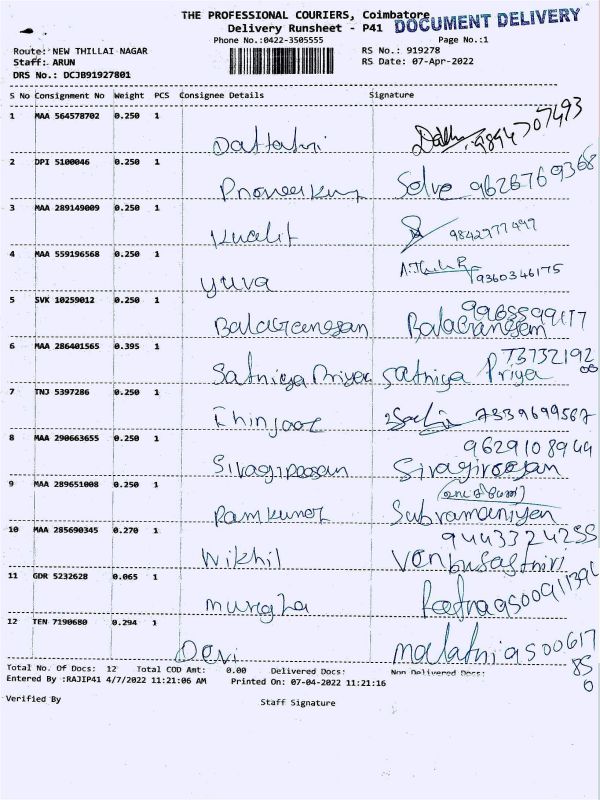 THE PROFESSIONAL COURIERS, Coimbatore
DOCUMENT DELIVERY
Delivery Runsheet - P41
Phone No.:0422-3505555 Page No.:1
Route: NEW THILLAI NAGAR RS No.: 919278
Staff: ARUN RS Date: 07-Apr-2022
DRS No.: DCJB91927801
S No Consignment No Weight PCS Consignee Details Signature
1 MAA 564578702 0.250 1
Dattatni 9894707493
2 DPI 5100046 0.250 1
Praveekum Selve 9626769368
3 MAA 289149009 0.250 1
Kualit 9842777497
4 MAA 559196568 0.250 1
yuva 9360346175
5 SVK 10259012 0.250 1
9965599177
BalaGanesan BalaGanesam
6 MAA 286401565 0.395 1
Satniya Priya Satniya Priya
7 TNJ 5397286 0.250 1
7339699567
8 MAA 290663655 0.250 1
9629108944
Sivagiroosan Sivagiroosan
9 MAA 289651008 0.250 1
Ramkumar Subramaniyan
10 MAA 285690345 0.270 1
9443324255
Nikhil
11 GDR 5232628 0.065 1
12 TEN 7190680 0.294 1
Devi malatni 9500617
85
0
Total No. Of Docs: 12 Total COD Amt: 0.00 Delivered Docs: Non Delivered Docs:
Entered By :RAJIP41 4/7/2022 11:21:06 AM Printed On: 07-04-2022 11:21:16
Verified By Staff Signature